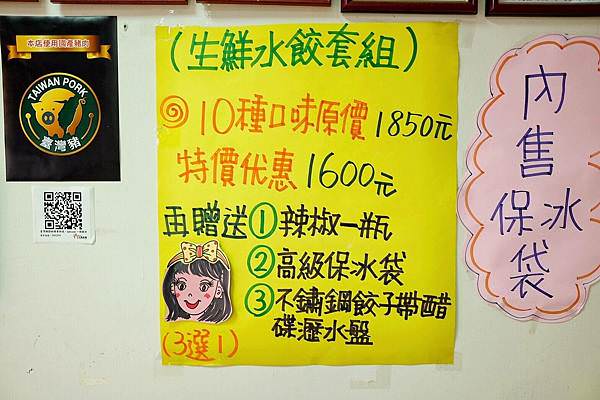 本店使用國產豬肉
TAIWAN PORK
臺灣豬
(生鮮水餃套組)
10種口味原價1850元
特價优惠1600元
再贈送①辣椒一瓶
②高級保冰袋
③不鏽鋼餃子帶醋
碟瀝水盤
(3選1)
內售
保冰
袋